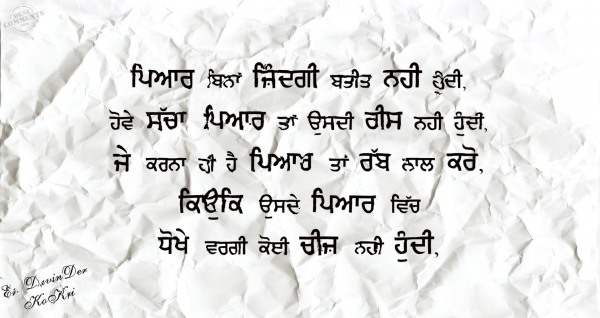 ਪਿਆਰ ਬਿਨਾਂ ਜ਼ਿੰਦਗੀ ਬਤੀਤ ਨਹੀ ਹੁੰਦੀ,
ਹੋਵੇ ਸੱਚਾ ਪਿਆਰ ਤਾਂ ਉਸਦੀ ਰੀਸ ਨਹੀ ਹੁੰਦੀ,
ਜੇ ਕਰਨਾ ਹੀ ਹੈ ਪਿਆਰ ਤਾਂ ਰੱਬ ਨਾਲ ਕਰੋ,
ਕਿਉਕਿ ਉਸਦੇ ਪਿਆਰ ਵਿੱਚ
ਧੋਖੇ ਵਰਗੀ ਕੋਈ ਚੀਜ ਨਹੀ ਹੁੰਦੀ,
Er. DevinDer
KoKri